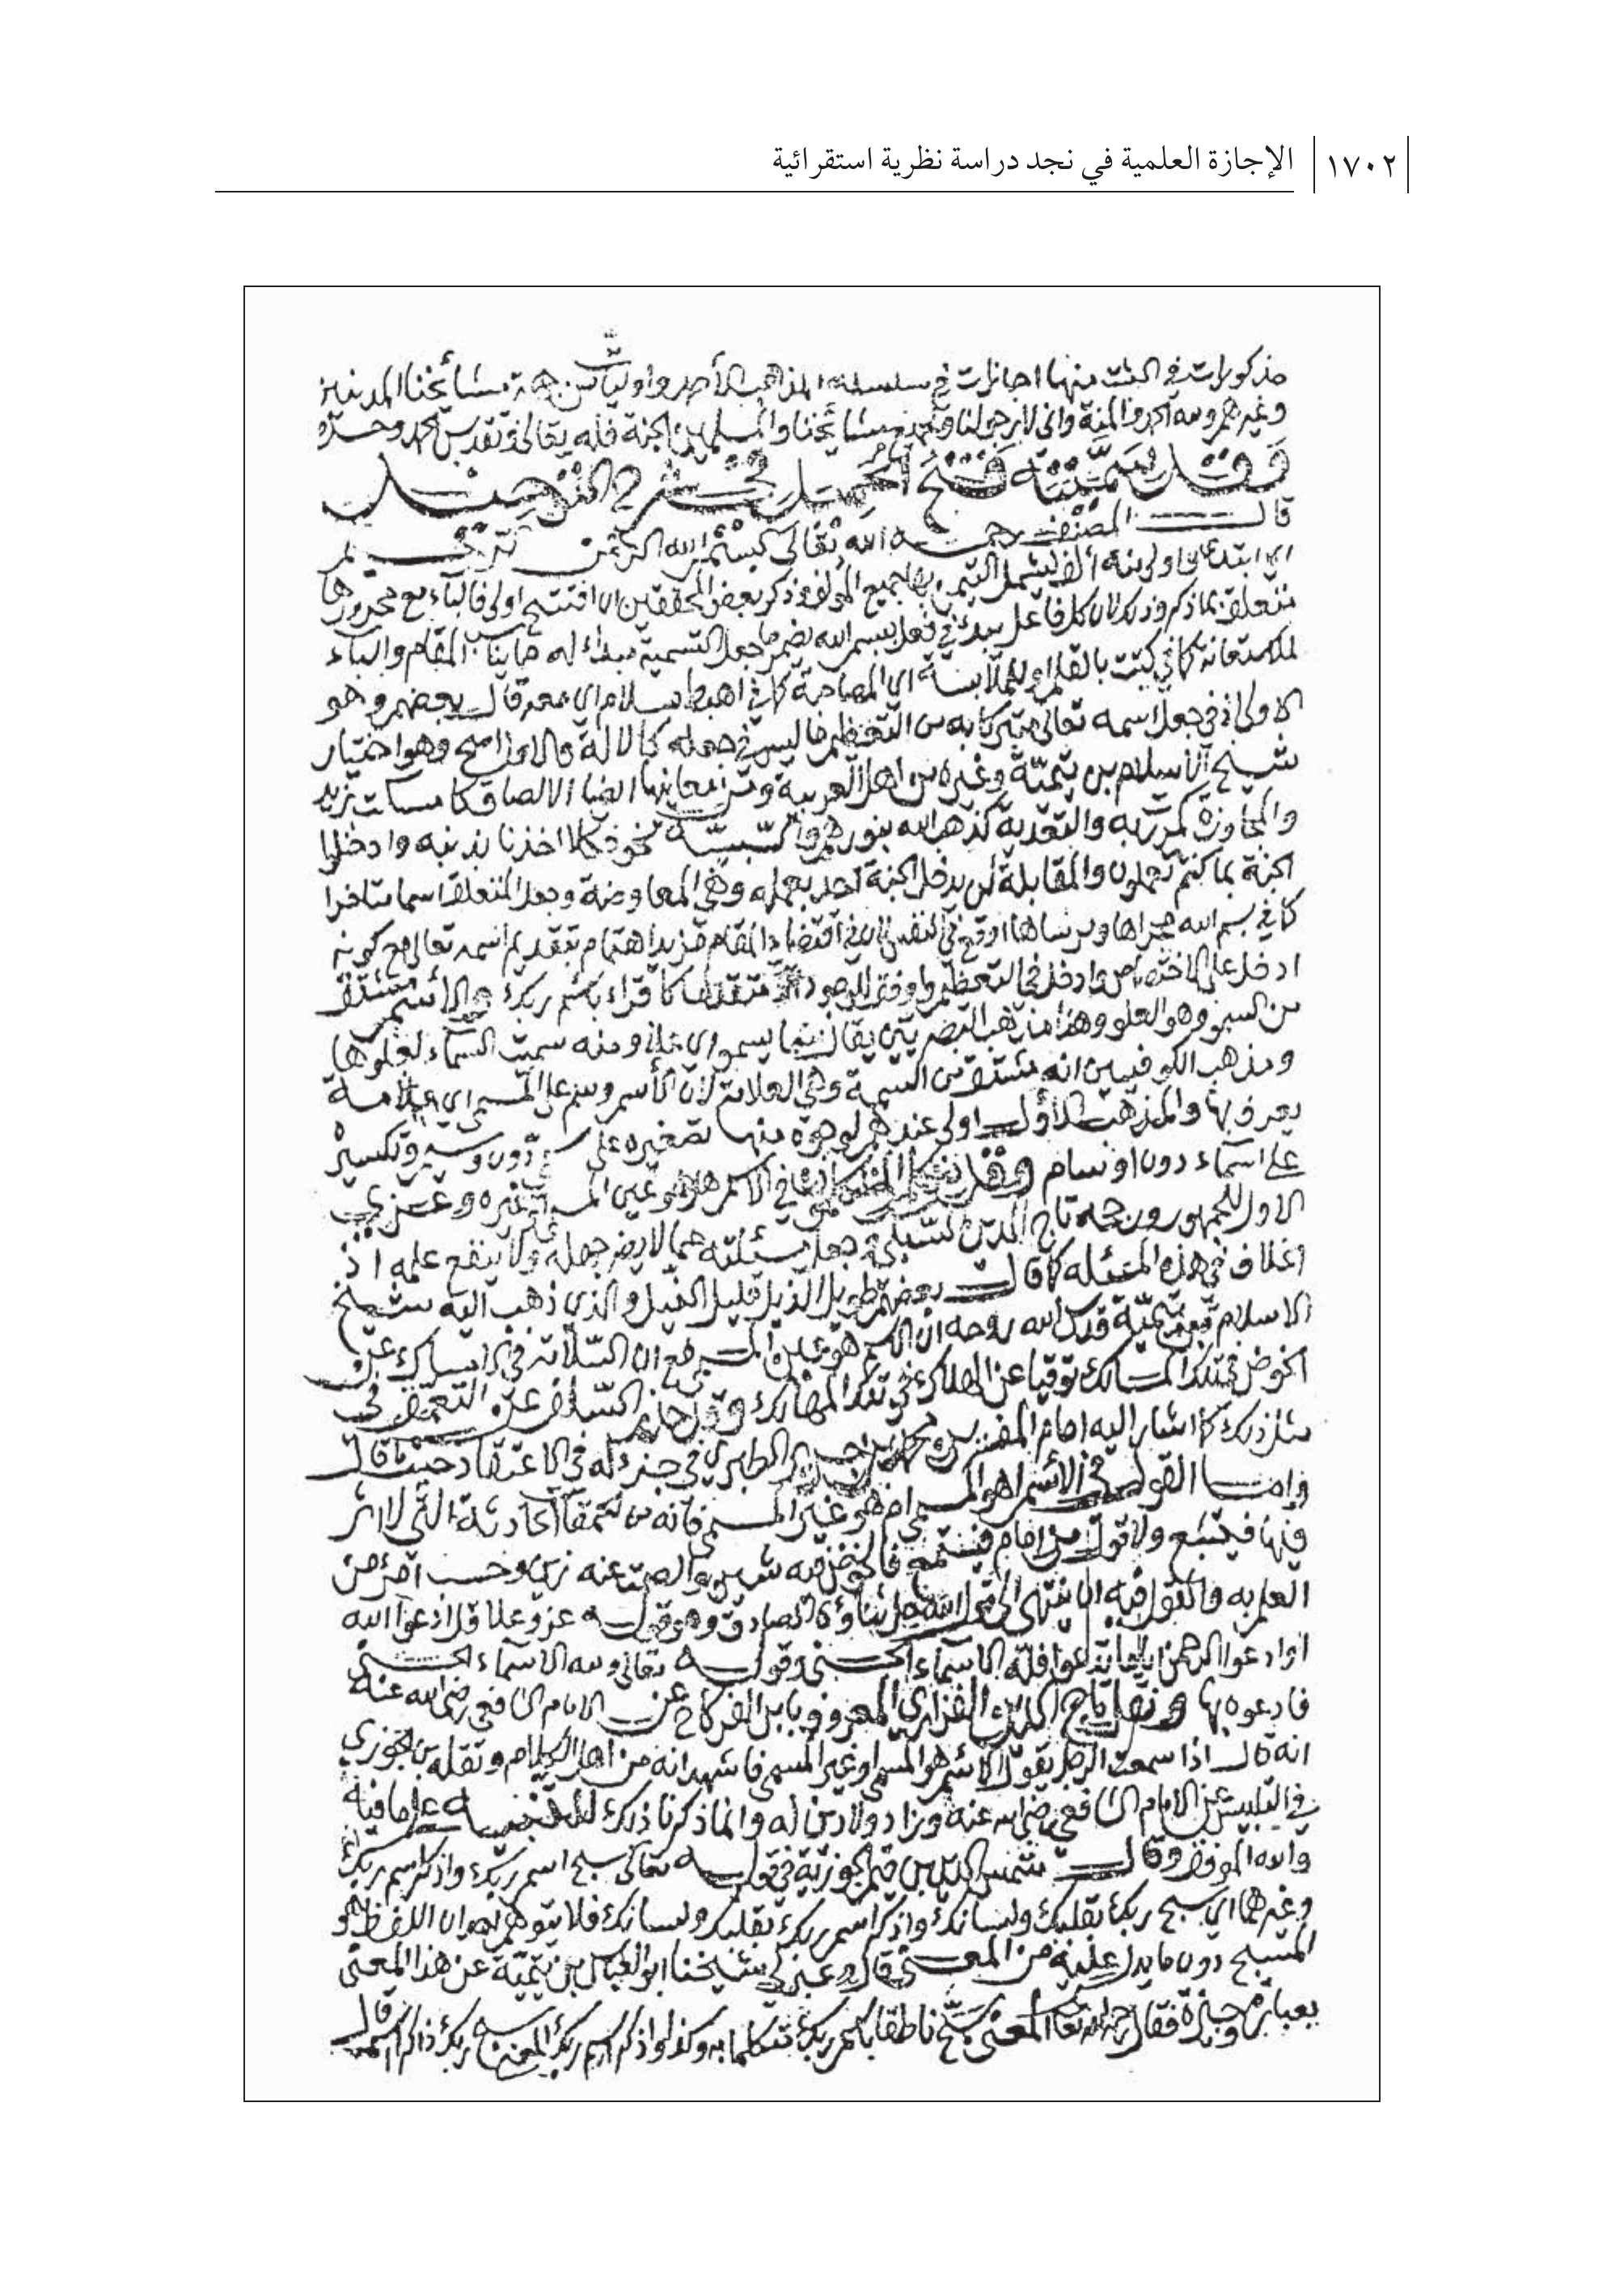 ١٧٠٢ الإجازة العلمية في نجد دراسة نظرية استقرائية
مذكورات في الثبت منها اجازات في سلسلة المذهب الأحمد وأوليات من جهة مشائخنا المدنيين
وغيرهم ولله الحمد والمنة واني لارجو لنا ولجميع مشائخنا والمسلمين الجنة فلله تعالى وتقدس الحمد وحده
وقد سميته فتح الحميد في شرح التوحيد
قال المصنف رحمه الله تعالى بسم الله الرحمن الرحيم
ابتدئ اولى منه أؤلف ليشمل التبرك بها جميع المؤلف وذكر بعض المحققين ان افتتح اولى فالباء مع مجرورها
متعلق بما ذكر وذلك لان كل فاعل يبدء في فعل ببسم الله يضمر ما جعل التسمية مبداء له مما يناسب المقام والباء
للاستعانة كما في كتبت بالقلم او للملابسة اي المصاحبة كما في اهبط بسلام اي معه قال بعضهم وهو
الاولى اذ في جعل اسمه تعالى متبركا به من التعظيم ما ليس في جعله كالالة والاول ارجح وهو اختيار
شيخ الأسلام بن تيمية وغيره من اهل العربية ومن معانيها ايضا الالصاق كامسكت بزيد
والمجاوزة كمررت به والتعدية كذهب الله بنورهم والسببية نحو فكلا اخذنا بذنبه وادخلوا
الجنة بما كنتم تعملون والمقابلة لن يدخل الجنة أحد بعمله وهي المعاوضة وجعل المتعلق اسما متاخرا
كما في بسم الله مجراها ومرساها اوقع في النفس لان في اقتضاء المقام مزيد اهتمام بتقديم اسمه تعالى مع كونه
ادخل على الاختصاص وادخل في التعظيم واوفق للوجود متقدما كاقراء باسم ربك والأسم مشتق
من السمو وهو العلو وهذا مذهب البصريين يقال سما يسمو اي علا ومنه سميت السماء لعلوها
ومذهب الكوفيين انه مشتق من السمة وهي العلامة لان الأسم وسم على المسمى اي علامة
يعرف بها والمذهب الأول اولى عندهم لوجوه منها تصغيره على سمي دون وسيم وتكسيره
على اسماء دون اوسام وقد في الاسم هل هو عين المسمى او غيره وعزي
الاول للجمهور ورجحه تاج الدين السبكي جعل مسئلته مما لا يضر جهله ولا ينفع علمه اذ
الخلاف في هذه المسئلة كما قال بعضهم طويل الذيل قليل النيل والذي ذهب اليه شيخ
الاسلام بن تيمية قدس الله روحه ان الاسم هو عين المسمى مع ان السلامة في الامساك عن
الخوض في تلك المسالك توقيا عن الهلاك في تلك المهالك وقد حاز السلف عن التعمق في
مثل ذلك كما اشار اليه امام المفسرين محمد بن جرير الطبري في جزء له في الاعتقاد حيث قال
وامّا القول في الأسم اهو المسمى ام هو غير المسمى فانه من الحماقات الحادثة التي لا اثر
فيها فيتبع ولا قول من امام فيستمع فالخوض فيه شين والصمت عنه زين وحسب امرء من
العلم به والقول فيه ان ينتهي الى قول الله جل ثناؤه الصادق وهو قوله عز وعلا قل ادعوا الله
اوادعوا الرحمن اياما تدعوا فله الاسماء الحسنى وقوله تعالى ولله الاسماء الحسنى
فادعوه بها ونقل تاج الدين الفزاري المعروف بابن الفركاح عن الامام الشافعي رضي الله عنه
انه قال اذا سمعت الرجل يقول الاسم هو المسمى او غير المسمى فاشهد انه من اهل الكلام ونقله بن الجوزي
في التلبيس عن الامام الشافعي رضي الله عنه وزاد ولا دين له وانما ذكرنا ذلك للتنبيه على ما فيه
والله الموفق وقال شمس الدين بن قيم الجوزية في قوله تعالى سبح اسم ربك واذكر اسم ربك
وغيرهما اي سبح ربك بقلبك ولسانك واذكر اسم ربك بقلبك ولسانك فلا يتوهم ان اللفظ هو
المسبح دون ما يدل عليه من المعنى قال وعبر لي شيخنا ابو العباس بن تيمية عن هذا المعنى
بعبارة وجيزة فقال رحمه الله تعالى المعنى سبح ناطقا باسم ربك متكلما به وكذا واذكر اسم ربك المعنى سبح ربك ذاكرا اسمه قال